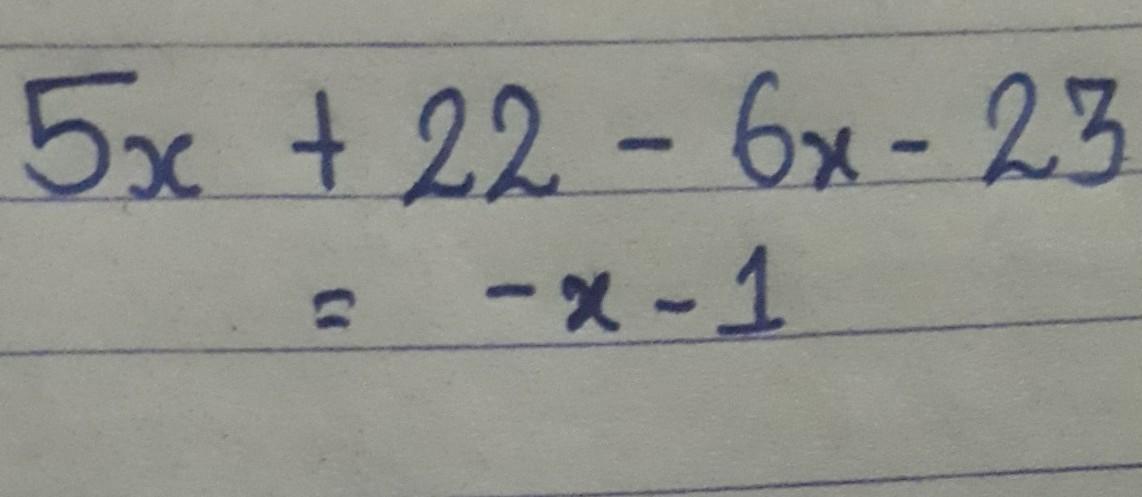 5x + 22 - 6x - 23
= -x - 1